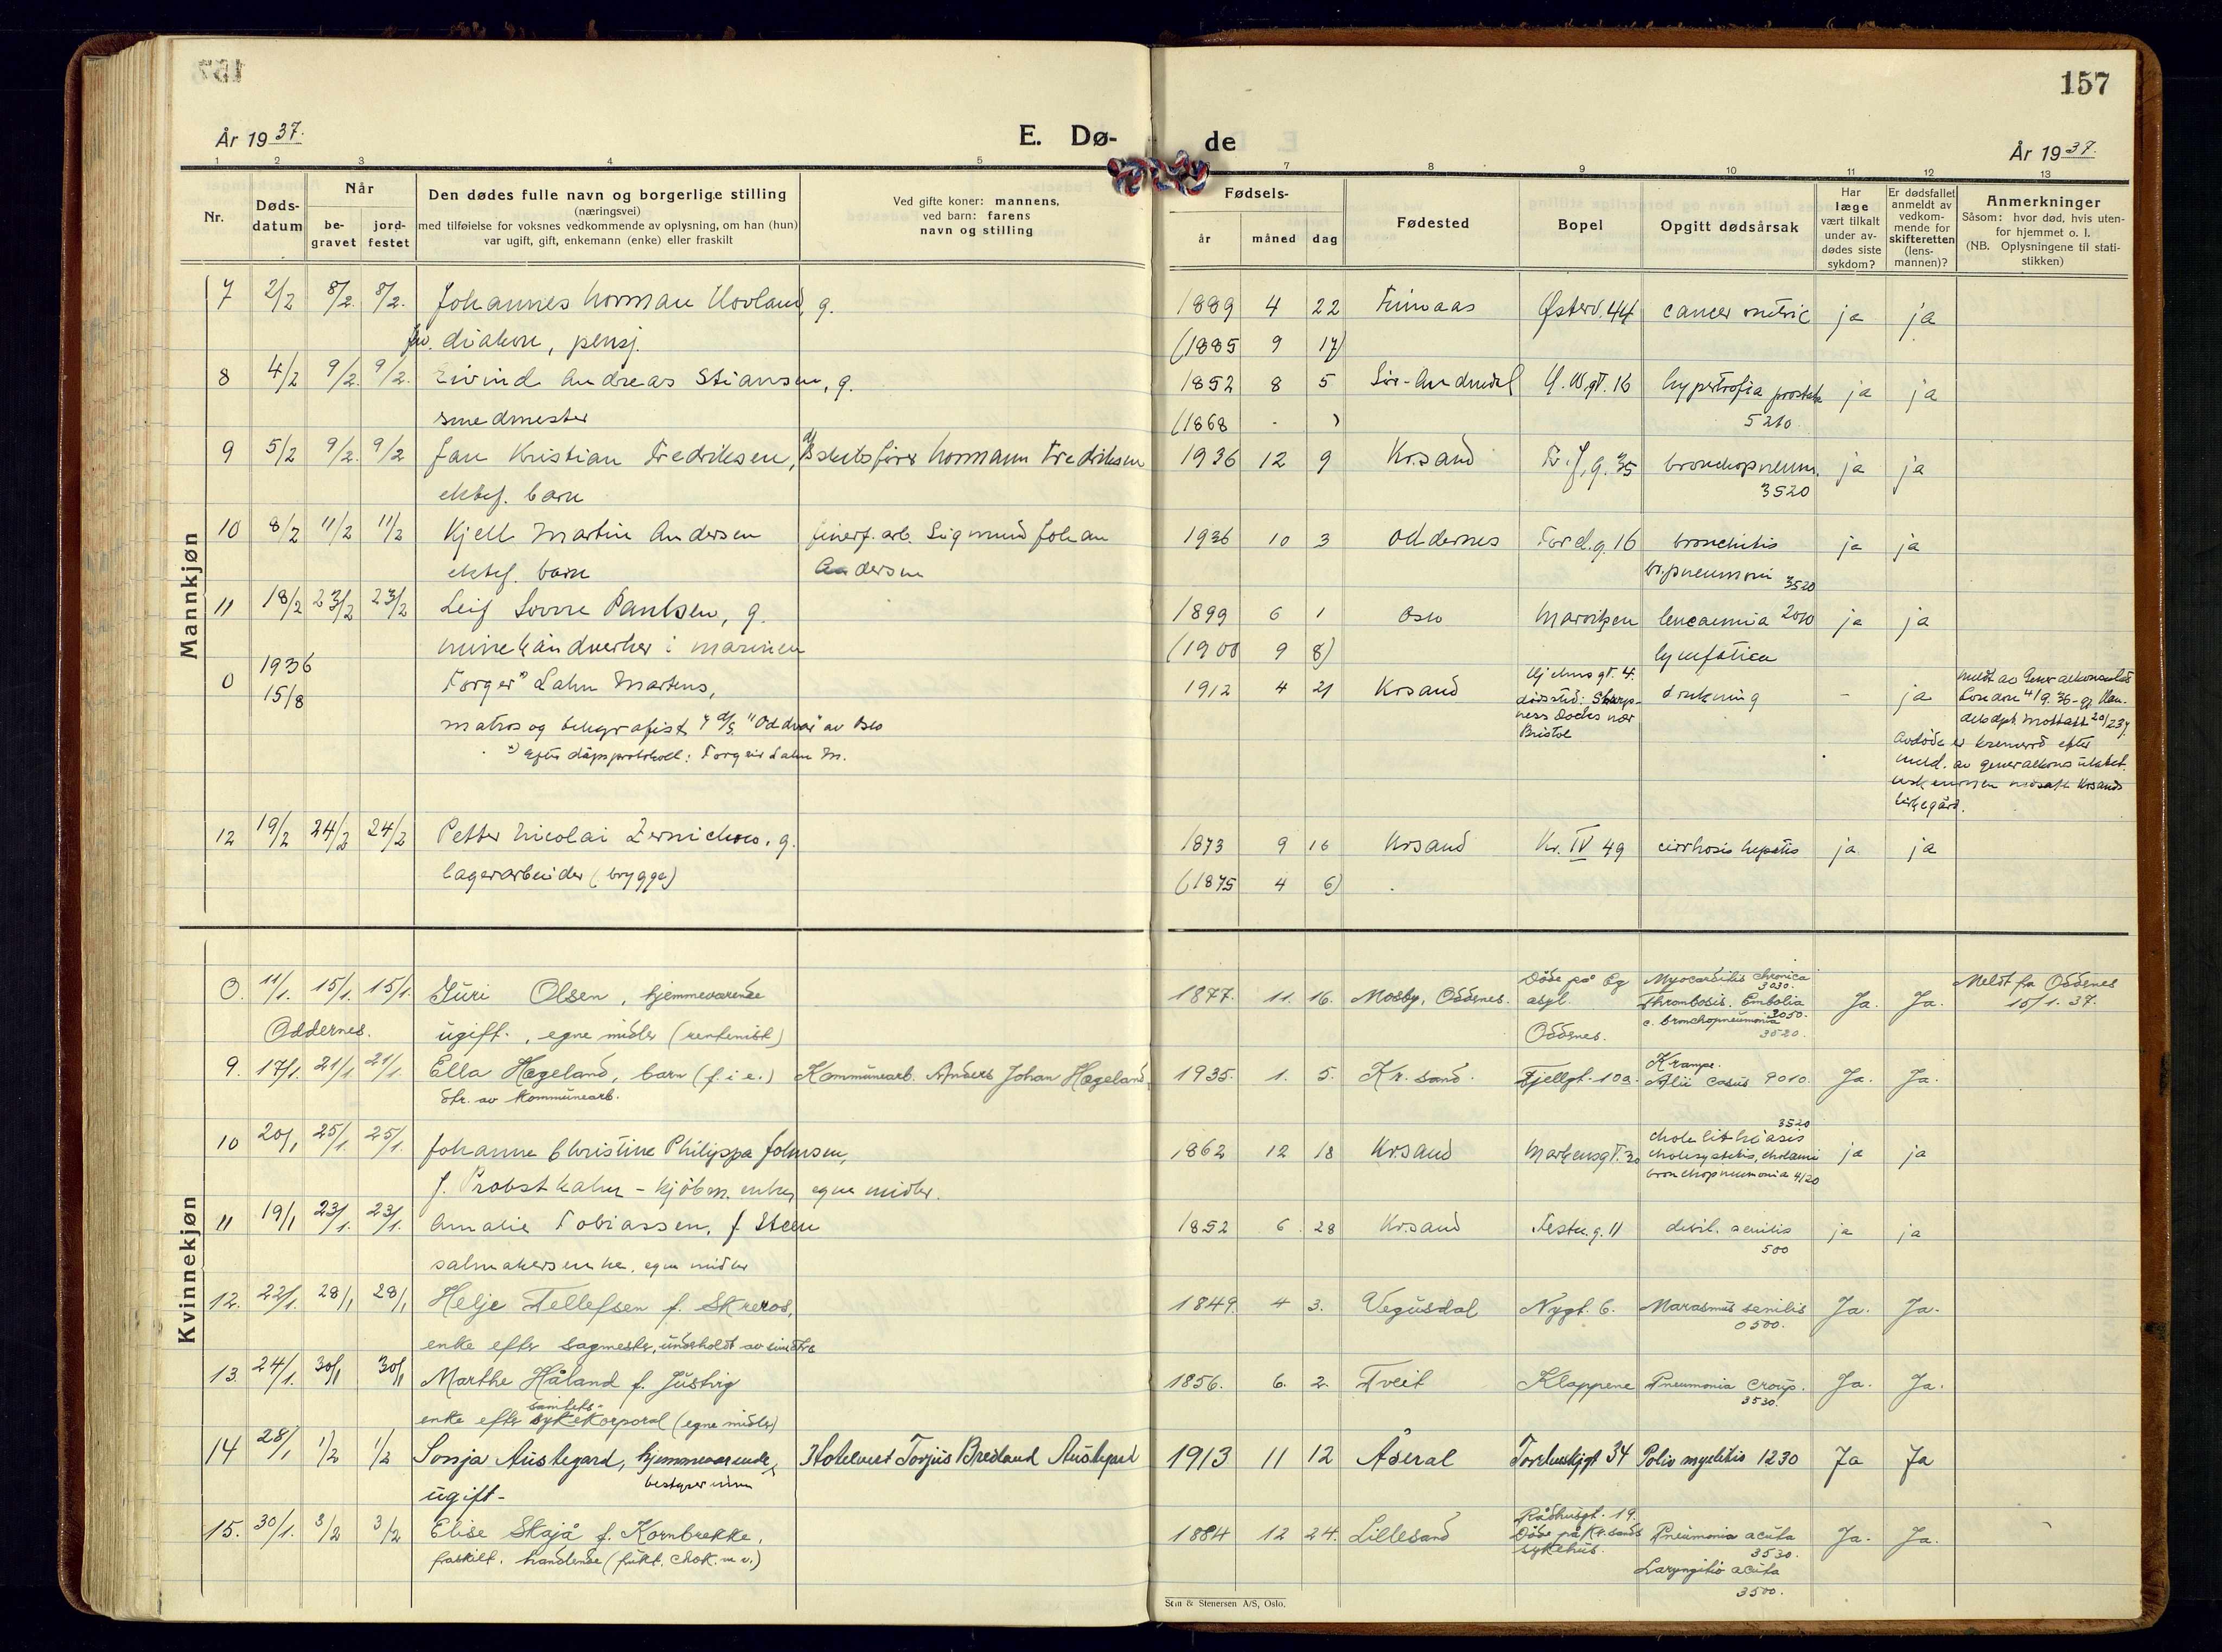 157
År 1937.
E. Dø-
de
År 1937.
1 2 3 4 5
7 8 9 10 11 12 13
Nr.
Døds-
datum
Når
be-
gravet
jord-
festet
Den dødes fulle navn og borgerlige stilling
(næringsvei)
med tilføielse for voksnes vedkommende av oplysning, om han (hun)
var ugift, gift, enkemann (enke) eller fraskilt
Ved gifte koner: mannens,
ved barn: farens
navn og stilling
Fødsels-
år måned dag
Fødested
Bopel
Opgitt dødsårsak
Har
læge
vært tilkalt
under av-
dødes siste
sykdom?
Er dødsfallet
anmeldt av
vedkom-
mende for
skifteretten
(lens-
mannen)?
Anmerkninger
Såsom: hvor død, hvis uten-
for hjemmet o. l.
(NB. Oplysningene til stati-
stikken)
Mannkjøn
7 2/2 8/2. 8/2. Johannes Norman Hovland, g. 1889 4 22 Østerv. 44 cancer ja ja
diakon, pensj. (1885 9 17)
8 4/2 9/2. 9/2. Eivind Andreas Stiansen, g. 1852 8 5 16 hypertrofia prostatæ ja ja
smedmester (1868 - ) 5210
9 5/2 9/2. 9/2 Jan Kristian Fredriksen, Normann Fredriksen 1936 12 9 Kr.sand 35 bronchopneum. ja ja
ektef. barn 3520
10 8/2 11/2 11/2 Kjell Martin Andersen Sigmund Johan 1936 10 3 Oddernes Tord.g. 16 bronchitis ja ja
ektef. barn Andersen br.pneumoni 3520
11 18/2 23/2 23/2 Leif Sverre Paulsen, g. 1899 6 1 Oslo Marviksen leucaemia 2010 ja ja
minehåndverker i marinen (1900 9 8) lymfatica
0 1936
15/8 Torger*) Lahn Martens, 1912 4 21 Krsand drukning - ja
dødssted: Sharp-
ness Docks nær
Bristol
matros og telegrafist "Oddvar" av Oslo
*) Efter dåpsprotokoll: Torgeir Lahn M.
meldt av Generalkonsulat
London 4/9.36
mottatt
Avdøde er kremert efter
meld. av generalkonsulatet.
Krsands
kirkegård.
12 19/2 24/2 24/2 Petter Nicolai Zernichow, g. 1873 9 16 Krsand Kr. IV 49 cirrhosis hepatis ja ja
lagerarbeider (brygge) (1875 4 6)
Kvinnekjøn
0. 11/1. 15/1. 15/1. Guri Olsen, hjemmeværende 1877. 11. 16. Mosby, Oddernes. Døde på Eg Myocarditis chronica Ja. Ja. Meldt fra Oddernes
asyl. 3030. Thrombosis. Embolia 3050. 15/1. 37.
Oddernes. ugift., egne midler (rentenist) Oddernes. c. bronchopneumonia 3520.
9. 17/1. 21/1. 21/1. Ella Hægeland, barn (f. i e.) Kommunearb. Anders Johan Hægeland. 1935. 1. 5. Kr.sand. Fjellgt. 10a. Krampe. Ja. Ja.
dtr. av kommunearb. Alii casus 9010.
10 20/1 25/1. 25/1. Johanne Christine Philippa Johnsen, 1862 12 18 Krsand Markensgt. 30 cholelithiasis 3520 ja ja
f. Probst - kjøbm. enke, egne midler. bronchopneumonia 4120
11 19/1 23/1. 23/1. Amalie Tobiassen, f. Steen 1852 6 28 Krsand Festn.g. 11 debil. senilis ja ja
salmakersenke, egne midler 500
12. 22/1. 28/1 28/1 Helje Tellefsen f. Skreros, 1849. 4 3. Vegusdal Nygt. 6. Marasmus senilis Ja. Ja.
enke efter sagmester, underholdt av sin dtr. 0500.
13. 24/1. 30/1 30/1 Marthe Håland f. Justvig 1856. 6. 2. Tveit Klappene Pneumonia croup. Ja. Ja.
samlets- 3530.
enke efter sykekorporal (egne midler)
14 28/1 1/2 1/2 Sonja Austegard, hjemmeværende, Hotelvert Torjus Bredland Austegard 1913 11 12 Åseral 34 Polio myelitis 1230 Ja Ja
bestyrerinne
ugift-
15. 30/1. 3/2 3/2 Elise Skajå f. Kornbrekke. 1884 12 24. Lillesand Rådhusgt. 19. Pneumonia acuta Ja. Ja.
Døde på Kr.sands 3530.
sykehus. Laryngitis acuta
3500.
faskilt. handlende (frukt. chok. m.v.)
Stm & Stenersen A/S, Oslo.